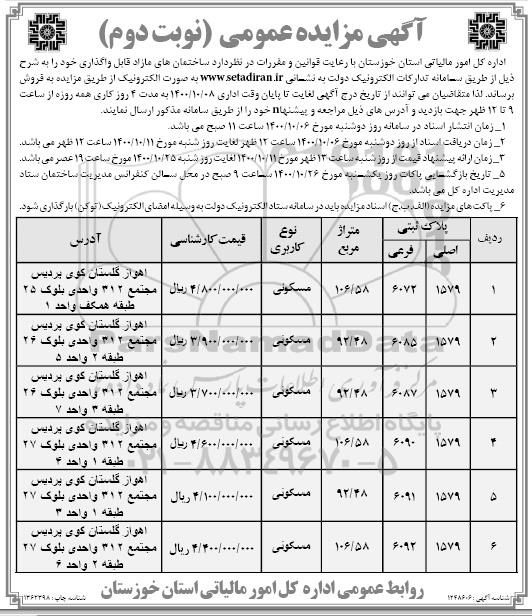 آگهی مزایده عمومی (نوبت دوم)
اداره کل امور مالیاتی استان خوزستان با رعایت قوانین و مقررات در نظردارد ساختمان های مازاد قابل واگذاری خود را به شرح
ذیل از طریق سامانه تدارکات الکترونیک دولت به نشانی www.setadiran.ir به صورت الکترونیک از طریق مزایده به فروش
برساند. لذا متقاضیان می توانند از تاریخ درج آگهی لغایت تا پایان وقت اداری ۱۴۰۰/۱۰/۰۸ به مدت ۴ روز کاری همه روزه از ساعت
۹ تا ۱۲ ظهر جهت بازدید و آدرس های ذیل مراجعه و پیشنهاn خود را از طریق سامانه مذکور ارسال نمایند.
۱_ زمان انتشار اسناد در سامانه روز دوشنبه مورخ ۱۴۰۰/۱۰/۰۶ ساعت ۱۱ صبح می باشد.
۲_ زمان دریافت اسناد از روز دوشنبه مورخ ۱۴۰۰/۱۰/۰۶ ساعت ۱۲ ظهر لغایت روز شنبه مورخ ۱۴۰۰/۱۰/۱۱ ساعت ۱۲ ظهر می باشد.
۳_ زمان ارائه پیشنهاد قیمت از روز شنبه ساعت ۱۳ ظهر مورخ ۱۴۰۰/۱۰/۱۱ لغایت روز شنبه ۱۴۰۰/۱۰/۲۵ مورخ ساعت ۱۹ عصر می باشد.
۵_ تاریخ بازگشایی پاکات روز یکشنبه مورخ ۱۴۰۰/۱۰/۲۶ ساعت ۹ صبح در محل سالن کنفرانس مدیریت ساختمان ستاد
مدیریت اداره کل می باشد.
۶_ پاکت های مزایده (الف.ب.ج) اسناد مزایده باید در سامانه ستاد الکترونیک دولت به وسیله امضای الکترونیک (توکن) بارگذاری شود.
ردیف پلاک ثبتی متراژ مربع نوع کاربری قیمت کارشناسی آدرس
اصلی فرعی
۱ ۱۵۷۹ ۶۰۷۲ ۱۰۶/۵۸ مسکونی ۴/۸۰۰/۰۰۰/۰۰۰ ریال اهواز گلستان کوی پردیس
مجتمع ۳۱۲ واحدی بلوک ۲۵
طبقه همکف واحد ۱
۲ ۱۵۷۹ ۶۰۸۵ ۹۲/۴۸ مسکونی ۳/۹۰۰/۰۰۰/۰۰۰ ریال اهواز گلستان کوی پردیس
مجتمع ۳۱۲ واحدی بلوک ۲۶
طبقه ۲ واحد ۵
۳ ۱۵۷۹ ۶۰۸۷ ۹۲/۴۸ مسکونی ۳/۷۰۰/۰۰۰/۰۰۰ ریال اهواز گلستان کوی پردیس
مجتمع ۳۱۲ واحدی بلوک ۲۶
طبقه ۳ واحد ۷
۴ ۱۵۷۹ ۶۰۹۰ ۱۰۶/۵۸ مسکونی ۴/۶۰۰/۰۰۰/۰۰۰ ریال اهواز گلستان کوی پردیس
مجتمع ۳۱۲ واحدی بلوک ۲۷
طبقه ۱ واحد ۴
۵ ۱۵۷۹ ۶۰۹۱ ۹۲/۴۸ مسکونی ۴/۱۰۰/۰۰۰/۰۰۰ ریال اهواز گلستان کوی پردیس
مجتمع ۳۱۲ واحدی بلوک ۲۷
طبقه ۱ واحد ۳
۶ ۱۵۷۹ ۶۰۹۲ ۱۰۶/۵۸ مسکونی ۴/۴۰۰/۰۰۰/۰۰۰ ریال اهواز گلستان کوی پردیس
مجتمع ۳۱۲ واحدی بلوک ۲۷
طبقه ۲ واحد ۶
ParsNamadData
پایگاه اطلاع رسانی مناقصه و مزایده
۰۲۱-۸۸۳۴۹۶۷۰-۵
روابط عمومی اداره کل امور مالیاتی استان خوزستان
شناسه آگهی: ۱۲۴۸۶۰۶
شناسه چاپ: ۱۳۶۲۳۹۸